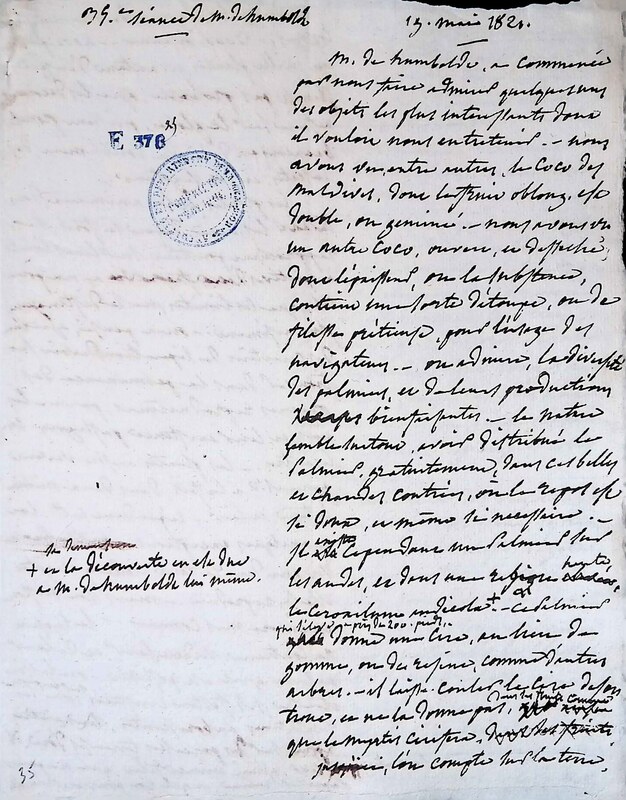 35.e séance de M. de humboldt
19. mai 1821.
E 376
M. de humboldt, a commencé
par nous faire admirer quelques uns
des objets les plus interessants dont
il vouloit nous entretenir. — nous
avons vu entre autres, le Coco des
Maldives, dont la forme oblong. est
double, ou geminé. — nous avons vu
un autre Coco, ouvert, et desseché,
dont l'épaisseur, ou la substance,
contient une sorte d'étoupe, ou de
filasse prétieuse, pour l'usage des
navigateurs. — on admire, la diversité
des palmiers, et de leurs productions
bienfaisantes. — la nature
semble surtout, avoir distribué le
Palmier, gratuitement, dans ces belles
et chaudes contrées, où le repos est
si doux, et même si necessaire. —
il existe Cependant un Palmier sur
les andes, et dans une region haute,
le Ceroxilum andicola + — ce Palmier
+ et la découverte en est due
a M. de humboldt lui même.
qui s'élève a près de 200. pieds.
donne une Cire, au lieu de
gomme, ou de resine, comme d'autres
arbres. — il laisse couler la Cire de son
tronc, et ne la donne pas, dans ses fruits comme
que le Myrtes cerifera,
l'on compte sur la terre,
35